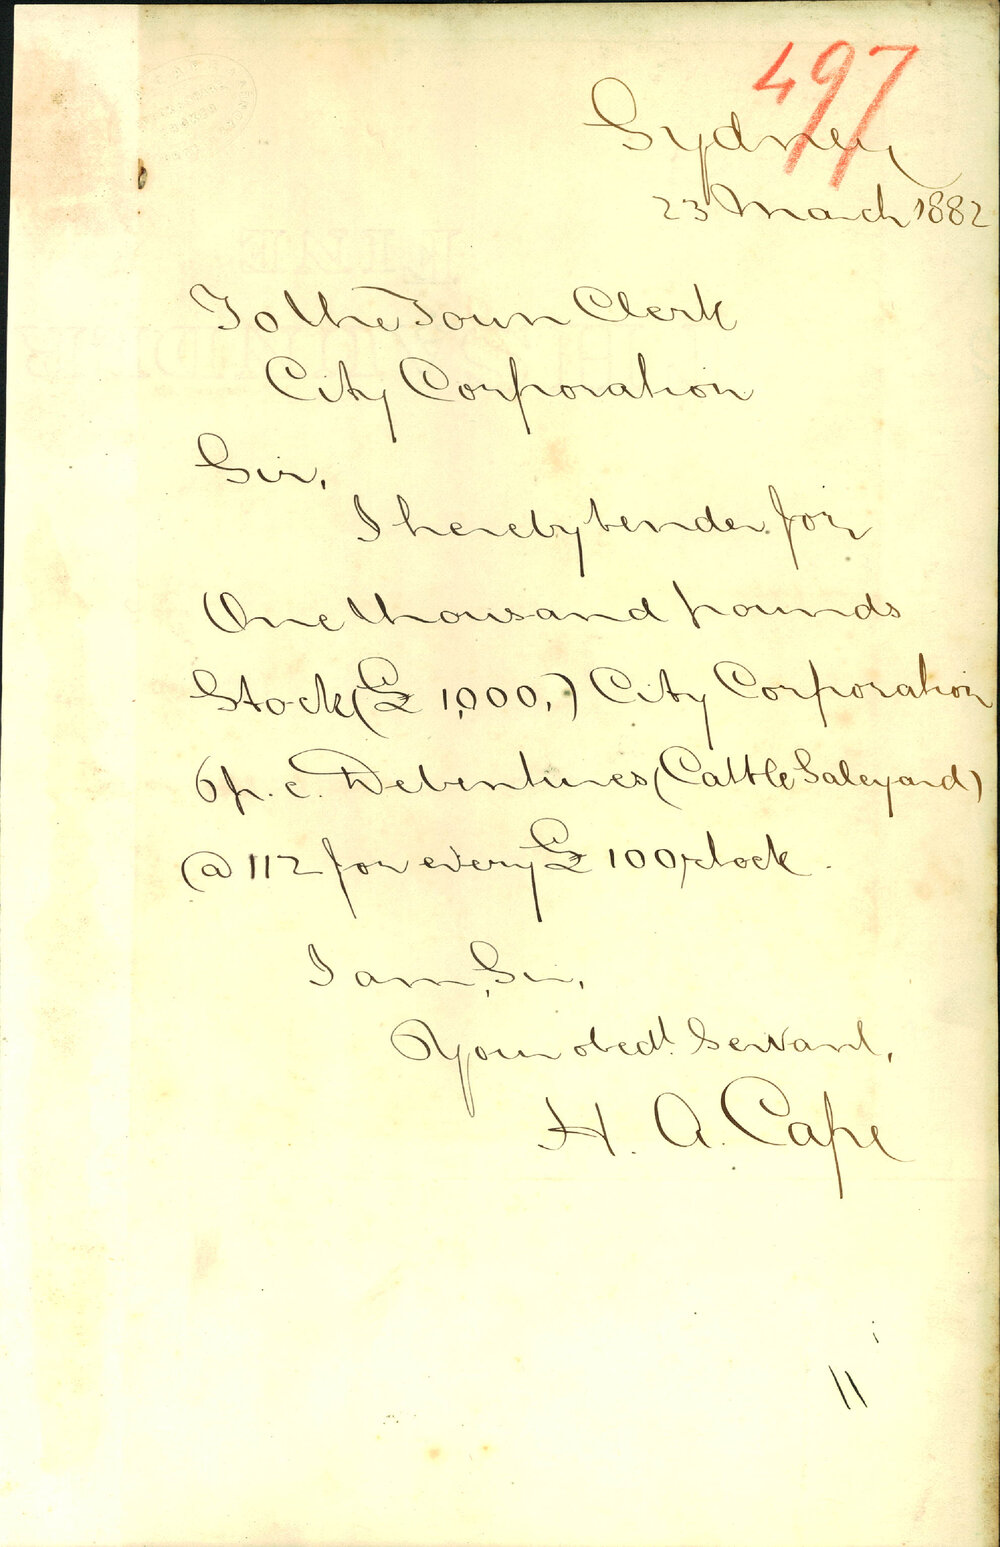 497
Sydney
23 March 1882
To the Town Clerk
City Corporation
Sir,
I hereby tender for
One thousand pounds
Stock (£1,000,) City Corporation
6 p. c. Debentures (Cattle Saleyard)
@ 112 for every £100 stock.
I am, Sir,
Your obedt. Servant,
H. A. Cape
11